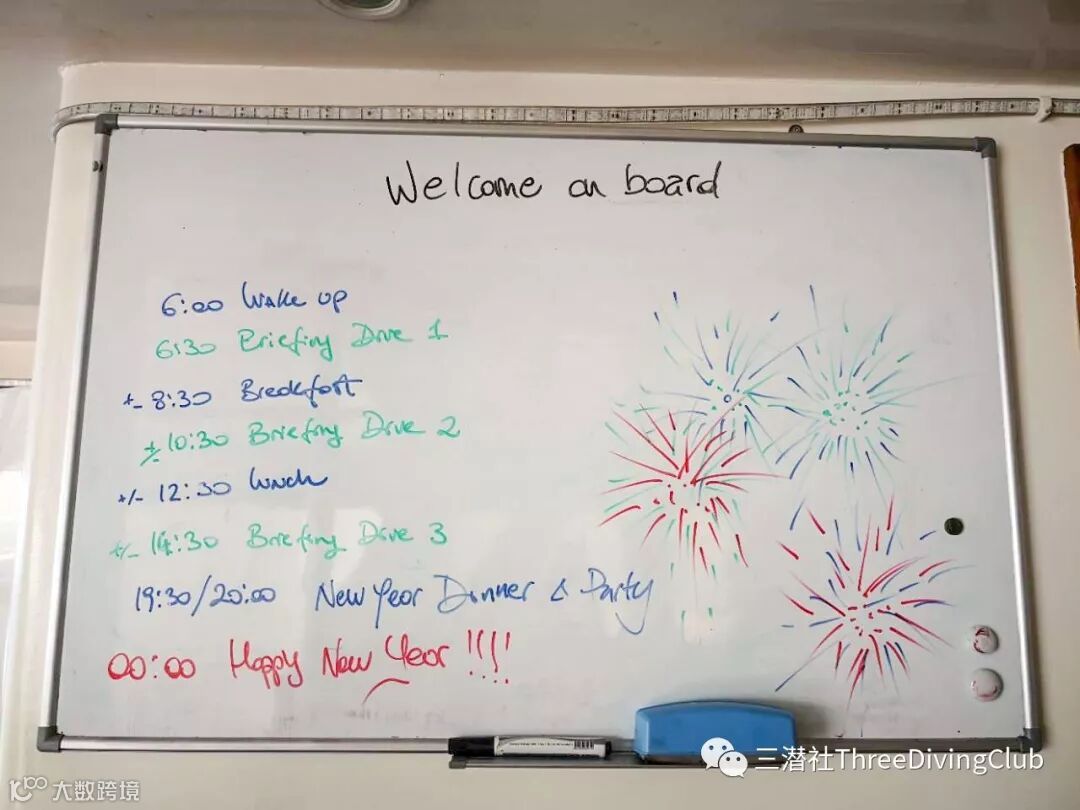 Welcome on board
6:00 Wake up
6:30 Briefing Dive 1
+- 8:30 Breakfast
+/- 10:30 Briefing Dive 2
+/- 12:30 Lunch
+/- 14:30 Briefing Dive 3
19:30/20:00 New Year Dinner & Party
00:00 Happy New Year !!!!
三潜社ThreeDivingClub
大数跨境